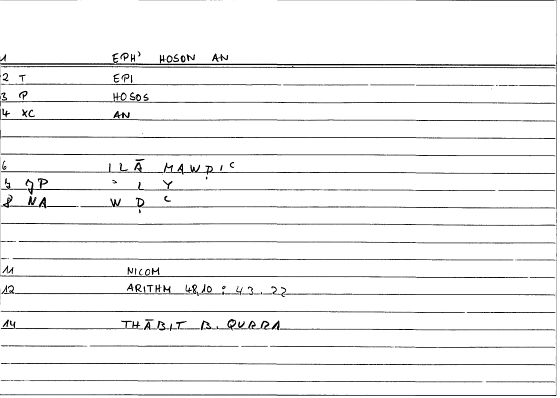 1 EPH' HOSON AN
2 T EPI
3 P HOSOS
4 XC AN
6 ILĀ MAWḌIʿ
5 gP ʾ L Y
8 NA W Ḍ ʿ
11 NICOM
12 ARITHM 48,10 : 43.22
14 THĀBIT B. QURRA